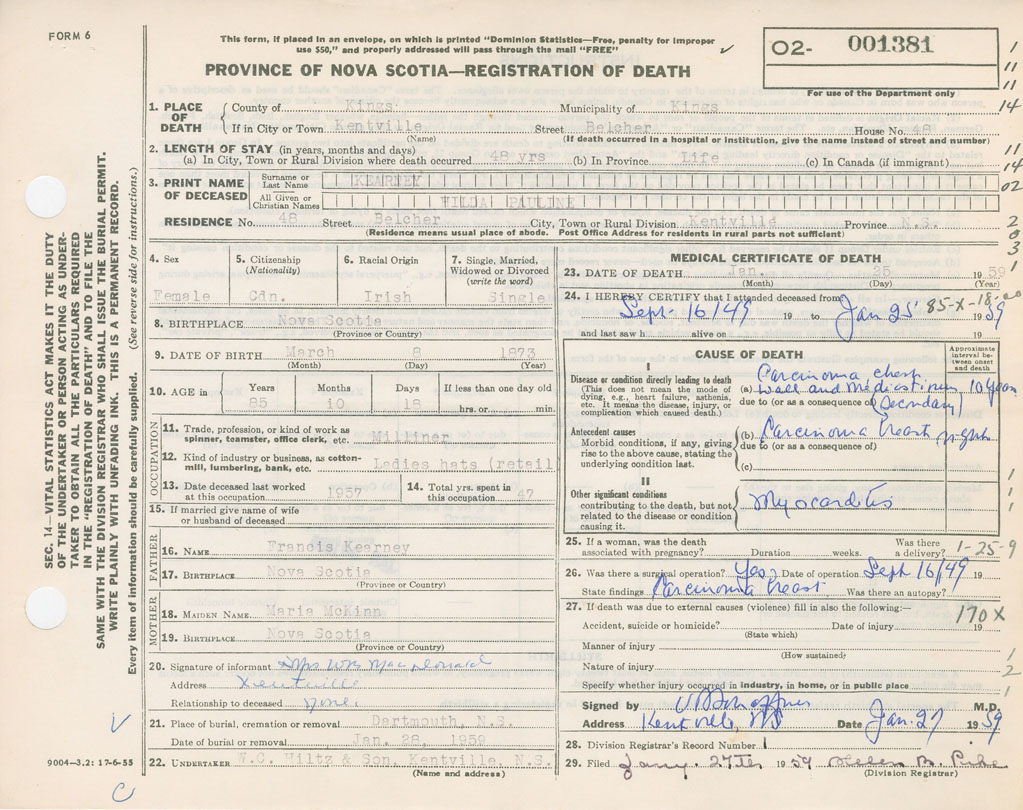 FORM 6
This form, if placed in an envelope, on which is printed "Dominion Statistics—Free, penalty for improper
use $50," and properly addressed will pass through the mail "FREE"
O2- 001381
For use of the Department only
PROVINCE OF NOVA SCOTIA—REGISTRATION OF DEATH
1. PLACE OF DEATH
County of Kings Municipality of Kings
If in City or Town Kentville Street Belcher House No. 48
(Name) (If death occurred in a hospital or institution, give the name instead of street and number)
2. LENGTH OF STAY (in years, months and days)
(a) In City, Town or Rural Division where death occurred 48 yrs (b) In Province Life (c) In Canada (if immigrant)
3. PRINT NAME OF DECEASED
Surname or Last Name KEARNEY
All Given or Christian Names HILDA PAULINE
RESIDENCE No. 48 Street Belcher City, Town or Rural Division Kentville Province N.S.
(Residence means usual place of abode. Post Office Address for residents in rural parts not sufficient)
4. Sex
Female
5. Citizenship
(Nationality)
Cdn.
6. Racial Origin
Irish
7. Single, Married,
Widowed or Divorced
(write the word)
Single
8. BIRTHPLACE Nova Scotia
(Province or Country)
9. DATE OF BIRTH March 8 1873
(Month) (Day) (Year)
10. AGE in
Years Months Days If less than one day old
85 10 18 hrs. or min.
OCCUPATION
11. Trade, profession, or kind of work as
spinner, teamster, office clerk, etc. Milliner
12. Kind of industry or business, as cotton-
mill, lumbering, bank, etc. Ladies hats (retail
13. Date deceased last worked
at this occupation 1937
14. Total yrs. spent in
this occupation 47
15. If married give name of wife
or husband of deceased
FATHER
16. NAME Francis Kearney
17. BIRTHPLACE Nova Scotia
(Province or Country)
MOTHER
18. MAIDEN NAME Maria McKinn
19. BIRTHPLACE Nova Scotia
(Province or Country)
20. Signature of informant Mrs Wm MacDonald
Address Kentville
Relationship to deceased
21. Place of burial, cremation or removal Dartmouth, N.S.
Date of burial or removal Jan. 28, 1959
22. UNDERTAKER W.C. Hiltz & Son, Kentville, N.S.
(Name and address)
MEDICAL CERTIFICATE OF DEATH
23. DATE OF DEATH Jan. 25 1959
(Month) (Day) (Year)
24. I HEREBY CERTIFY that I attended deceased from
85-X-18-
Sept 16/49 19 to Jan 25 1959
and last saw h alive on 19
CAUSE OF DEATH
Approximate
interval be-
tween onset
and death
I
Disease or condition directly leading to death
(This does not mean the mode of
dying, e.g., heart failure, asthenia,
etc. It means the disease, injury, or
complication which caused death.)
(a) Carcinoma chest
wall and Mediastinum 10 years
due to (or as a consequence of) (Secondary)
Antecedent causes
Morbid conditions, if any, giving
rise to the above cause, stating the
underlying condition last.
(b) Carcinoma breast right
due to (or as a consequence of)
(c)
II
Other significant conditions
contributing to the death, but not
related to the disease or condition
causing it.
Myocarditis
25. If a woman, was the death Was there
associated with pregnancy? Duration weeks. a delivery?
1-25-9
26. Was there a surgical operation? Yes Date of operation Sept 16/49 19
State findings Carcinoma breast Was there an autopsy?
27. If death was due to external causes (violence) fill in also the following:—
170X
Accident, suicide or homicide? Date of injury 19
(State which)
Manner of injury
(How sustained)
Nature of injury
Specify whether injury occurred in industry, in home, or in public place
Signed by M.D.
Address Kentville, NS Date Jan. 27 1959
28. Division Registrar's Record Number 1
29. Filed Jany. 27th 1959 Helen B. Pike
(Division Registrar)
SEC. 14—VITAL STATISTICS ACT MAKES IT THE DUTY
OF THE UNDERTAKER OR PERSON ACTING AS UNDER-
TAKER TO OBTAIN ALL THE PARTICULARS REQUIRED
IN THE "REGISTRATION OF DEATH" AND TO FILE THE
SAME WITH THE DIVISION REGISTRAR WHO SHALL ISSUE THE BURIAL PERMIT.
WRITE PLAINLY WITH UNFADING INK. THIS IS A PERMANENT RECORD.
Every item of information should be carefully supplied. (See reverse side for instructions.)
9004—3.2: 17-6-55
C
1
11
11
14
11
14
02
2
0
3
1
1
1
1
1
2
1